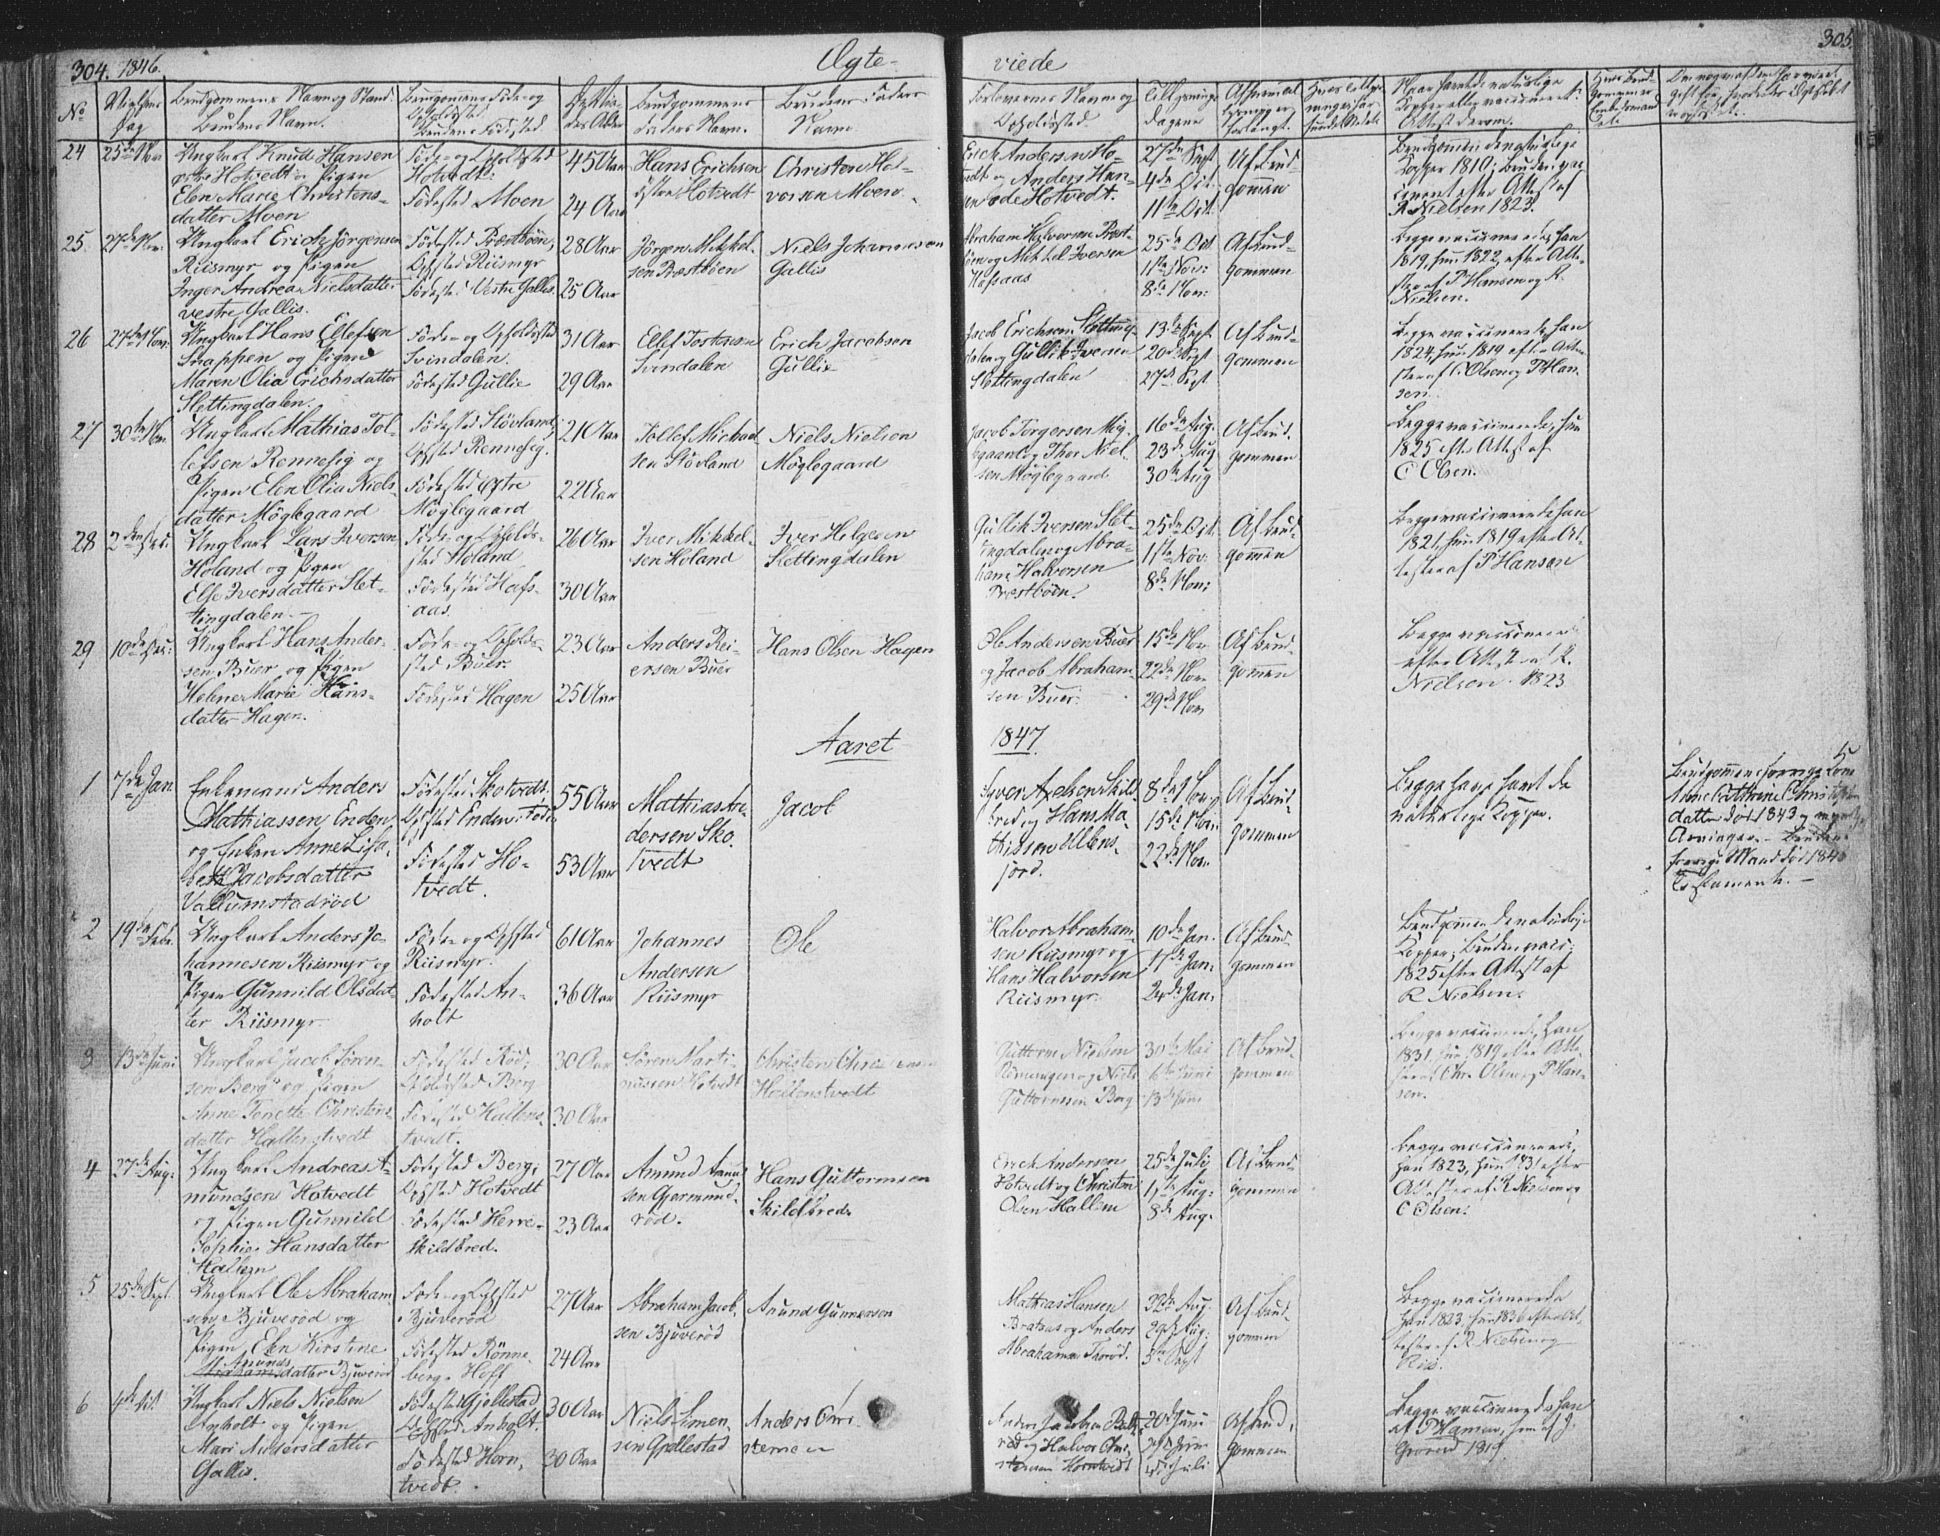 304. 1846.
Ægte-
viede
305.
No
Vielses Dag
Brudgommens Navn og Stand.
Brudens Navn.
Brudgommens Føde- og
Opholdssted
Brudens Fødested
Brudgommens
Faders Navn.
Brudens Faders
Navn
Forlovernes Navne og
Opholdssted.
24
25de Nov
Ungkarl Knud Hansen
østre Hotvedt og Pigen
Elen Marie Christens-
datter Moen
Føde- og Opholdssted
Hotvedt.
Fødested Moen
45 Aar
24 Aar
Hans Erichsen
østre Hotvedt
Christen Hal-
vorsen Moen.
Erich Andersen Ho-
tvedt og Anders Han-
sen øde Hotvedt.
27de Sept
4de Oct.
11te Oct.
Af Brud-
gommen
Brudgommen de naturlige
Kopper 1810; Bruden vac-
cineret efter Attest af
R Nielsen 1823.
25
27de Nov.
Ungkarl Erich Jørgensen
Riismyr og Pigen
Inger Andrea Nielsdatter
vestre Gallis.
Fødested Præstbøen,
Opsted Riismyr
Fødested Vestre Gallis
28 Aar
25 Aar
Jørgen Mikkel-
sen Præstbøen
Niels Johannesen
Gallis
Abraham Halvorsen Præst-
bøen og Mikkel Iversen
Hofsaas
25de Oct
1ste Nov:
8de Nov:
Af Brud-
gommen
Begge vaccinerede, han
1819, hun 1822, efter Atte-
ster af P Hansen og R.
Nielsen.
26
27de Nov:
Ungkarl Hans Ellefsen
Snappen og Pigen
Maren Olia Erichsdatter
Slettingdalen.
Føde- og Opholdssted
Svindalen.
Fødested Gullie
31 Aar
29 Aar
Ellef Tostensen
Svindalen
Erich Jacobsen
Gullie
Jacob Erichsen Sletting-
dalen og Gullik Iversen
Slettingdalen
13de Sept
20de Sept
27de Sept
Af Brud-
gommen
Begge vaccinerede, han
1824, hun 1819 efter Atte-
ster af C Olsen og P Han-
sen.
27
30te Nov.
Ungkarl Mathias Tol-
lefsen Rennesig og
Pigen Elen Olia Niels-
datter Møglegaard
Fødested Støvland,
Opsted Rennesig.
Fødested Østre
Møglegaard
21 Aar
22 Aar
Tollef Michael
sen Støvland
Niels Nielsen
Møglegaard
Jacob Torgersen Møg-
legaard og Thor Niel-
sen Møglegaard
16de Aug.
23de Aug
30te Aug
Af Brud-
gommen
Begge vaccinerede, hun
1825 efter Attest af
C Olsen.
28
2den Dec:
Ungkarl Lars Iversen
Holand og Pigen
Else Iversdatter Slet-
tingdalen.
Føde- og Opholds-
sted Holand
Fødested Hofs-
aas.
26 Aar
30 Aar
Iver Mikkel-
sen Holand
Iver Helgesen
Slettingdalen
Gullik Iversen Slet-
tingdalen og Abra-
ham Halvorsen
Præstbøen.
25de Oct.
1ste Nov:
8de Nov:
Af Brud-
gommen
Begge vaccinerede han
1821, hun 1819 efter At-
tester af P Hansen
29
10de Dec:
Ungkarl Hans Ander-
sen Buer og Pigen
Helene Marie Hans-
datter Hagen.
Føde- og Opholds-
sted Buer.
Fødested Hagen
23 Aar
25 Aar
Anders Rei-
ersen Buer
Hans Olsen Hagen
Ole Andersen Buer
og Jacob Abraham-
sen Buer.
15de Nov
22de Nov
29de Nov
Af Brud-
gommen
Begge vaccinerede
efter Attest af R.
Nielsen 1823
Aaret
1847.
1
7de Jan
Enkemand Anders
Mathiassen Enden
og Enken Anne Lisa-
beth Jacobsdatter
Vallumstadrød
Fødested Skotvedt.
Opsted Enden
Fødested Ho-
tvedt.
55 Aar
53 Aar
Mathias An-
dersen Sko-
tvedt
Jacob
Syver Axelsen Skild-
bred og Hans Ma-
thissen Ullens-
jord.
8de Nov
15de Nov:
22de Nov.
Af Brud-
gommen
Begge have havt de
naturlige Kopper.
Brudgommens forrige Kone
Anne Cathrine Christens-
datter død 1843
Arvinger. - Brudens
forrige Mand død 184
Testamente. -
2
19de Febr.
Ungkarl Anders Jo-
hannesen Riismyr og
Pigen Gunnild Olsdat-
ter Riismyr
Føde- og Opsted
Riismyr.
Fødested An-
holt
61 Aar
36 Aar
Johannes
Andersen
Riismyr
Ole
Halvor Abraham-
sen Riismyr og
Hans Halvorsen
Riismyr.
10de Jan.
17de Jan:
24de Jan:
Af Brud-
gommen
Brudgommen de naturlige
Kopper; Bruden vacc:
1825 efter Attest af
R Nielsen.
3
13de Juni
Ungkarl Jacob Søren-
sen Berg og Pigen
Anne Tonette Christens-
datter Hallenstvedt
Fødested Rød,
Opholdssted Berg
Fødested Hallens-
tvedt.
30 Aar
30 Aar
Søren Marti-
nussen Hotvedt
Christen Christensen
Hallenstvedt
Guttorm Nielsen
Rømningen og Niels
Guttormsen Berg
30te Mai
6te Juni
13de Juni
Af Brud-
gommen
Begge vaccinerede, han
1831, hun 1819 efter Atte-
ster af Chr. Olsen og P Han-
sen.
4
27de Aug:
Ungkarl Andreas A-
mundsen Hotvedt
og Pigen Gunnild
Sophie Hansdatter
Hallem
Fødested Berg,
Opsted Hotvedt
Fødested Herre-
skildbred.
27 Aar
23 Aar
Amund Amund-
sen Gjermund-
rød.
Hans Guttormsen
Skildbred.
Erich Andersen
Hotvedt og Christen
Olsen Hallem
25de Juli
1ste Aug:
8de Aug.
Af Brud-
gommen
Begge vaccinerede,
han 1823, hun 1831 efter
Attester af R Nielsen og
C Olsen.
5
25de Sept.
Ungkarl Ole Abraham-
sen Bjuverød og
Pigen Elen Kirstine
Anunds
datter Bjuverød
Føde- og Opsted
Bjuverød
Fødested Rønne-
berg, Hoff
27 Aar
24 Aar
Abraham Jacob-
sen Bjuverød
Anund Gunnersen
Mathias Hansen
Bratsaas og Anders
Abrahamsen Thorød.
22de Aug.
29de Aug:
5te Sept
Af Brud-
gommen
Begge vaccinerede
han 1823, hun 1836 efter At-
tester af R Nielsen og
Riis.
6
4de Oct
Ungkarl Niels Nielsen
Anholt og Pigen
Mari Andersdatter
Gallis.
Fødested Gjellestad,
Opsted Anholt.
Fødested Horn-
tvedt.
30 Aar
30 Aar
Niels Simen-
sen Gjellestad
Anders Chri-
stensen
Anders Jacobsen
rød og Halvor Chri-
stensen Horntvedt
20de Juni
Juni
Juli
Af Brud-
gommen
Begge vaccinerede, han
af P Hansen, hun af J.
1819.